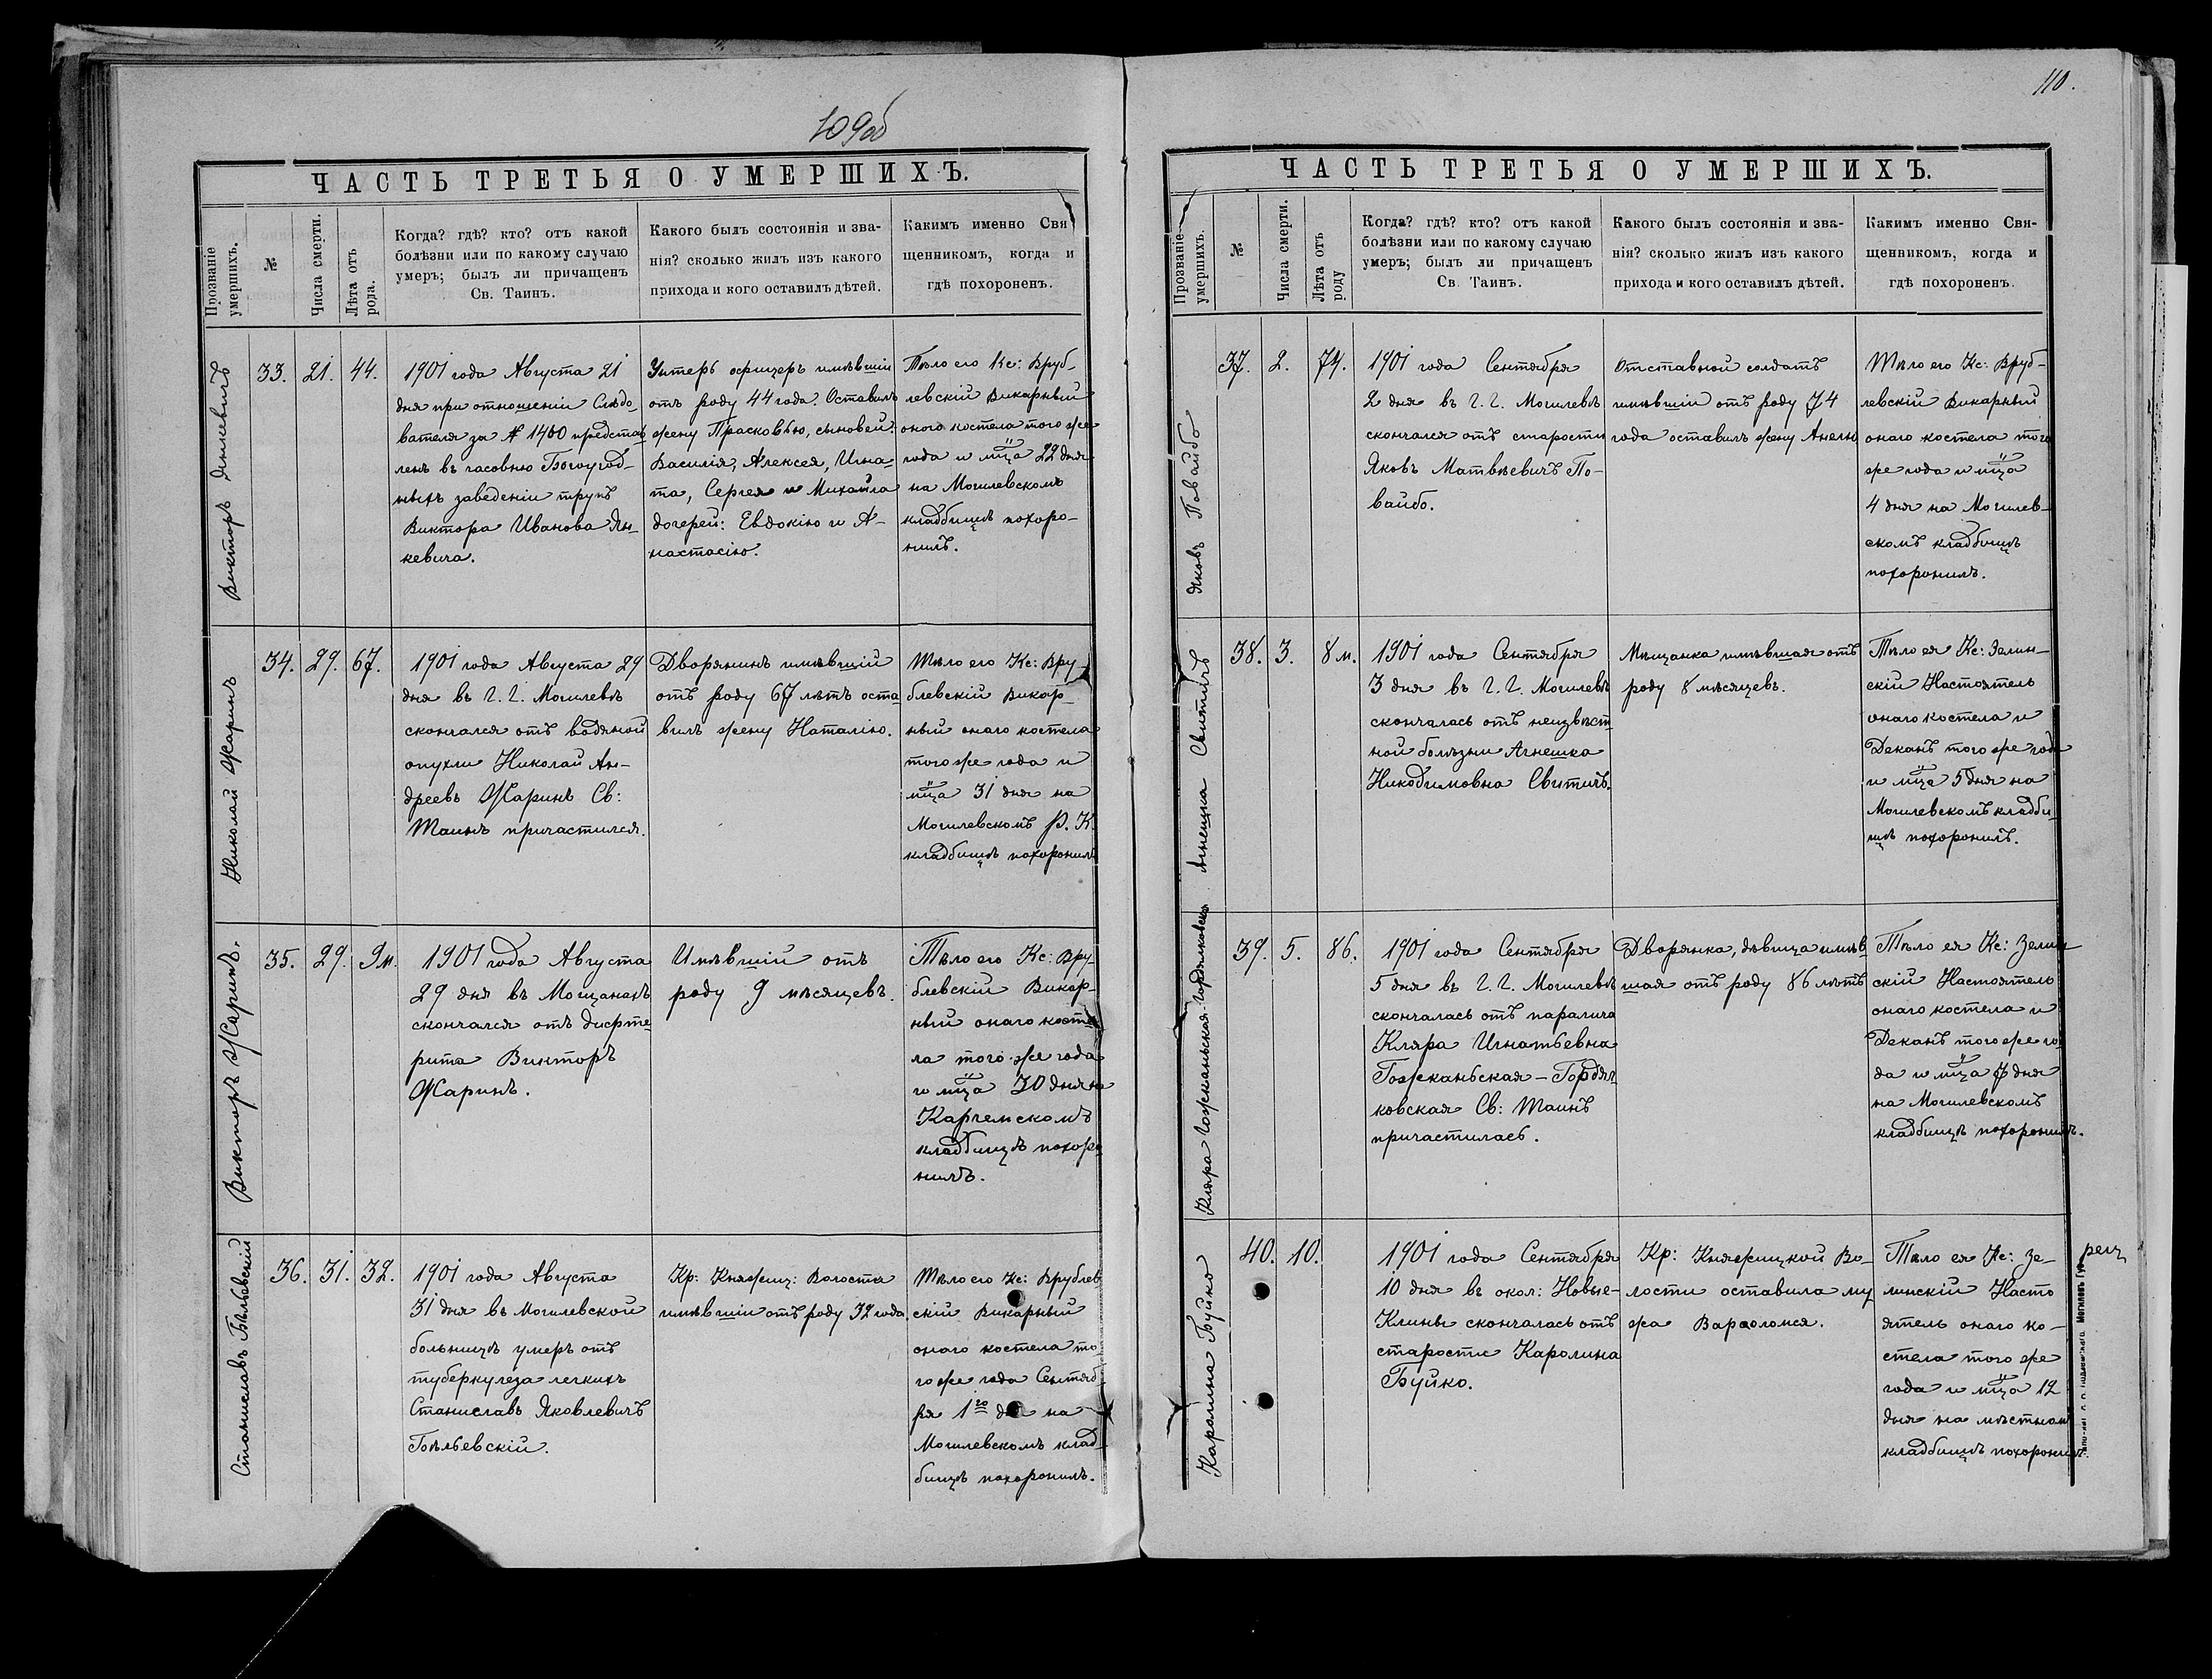 109об
ЧАСТЬ ТРЕТЬЯ О УМЕРШИХЪ.
Прозваніе умершихъ.
№
Числа смерти.
Лѣта отъ рода.
Когда? гдѣ? кто? отъ какой
болѣзни или по какому случаю
умеръ; былъ ли причащенъ
Св. Таинъ.
Какого былъ состоянія и зва-
нія? сколько жилъ изъ какого
прихода и кого оставилъ дѣтей.
Какимъ именно Свя
щенникомъ, когда и
гдѣ похороненъ.
Викторъ Янкевичъ
33. 21. 44.
1901 года Августа 21
дня при отношеніи Слѣдо-
вателя за № 1400 представ
ленъ въ часовню Богоугод-
ныхъ заведеніи трупъ
Виктора Иванова Ян-
кевича.
Унтеръ офицеръ имѣвшій
отъ роду 44 года. Оставилъ
жену Прасковью, сыновей:
Василія, Алексея, Игна-
та, Сергея и Михаила
дочерей: Евдокію и А-
настасію.
Тѣло его Кс: Вруб-
левскій Викарный
оного костела того же
года и мца 22 дня
на Могилевскомъ
кладбищѣ похоро-
нилъ.
Николай Жаринъ
34. 29. 67.
1901 года Августа 29
дня въ Г. Г. Могилевѣ
скончался отъ водяной
опухли Николай Ан-
дреевъ Жаринъ Св:
Таинъ причастился.
Дворянинъ имѣвшій
отъ роду 67 лѣтъ оста
вилъ жену Наталію.
Тѣло его Кс: Вру-
блевскій Викар-
ный онаго костела
того же года и
мца 31 дня на
Могилевскомъ Р. К.
кладбищѣ похоронилъ
Викторъ Жаринъ.
35. 29. 9 м.
1901 года Августа
29 дня въ Мощанахъ
скончался отъ дифте-
рита Викторъ
Жаринъ.
Имѣвшій отъ
роду 9 мѣсяцевъ.
Тѣло его Кс: Вру-
блевскій Викар-
ный онаго косте
ла того же года
и мца 30 дня на
Карчемскомъ
кладбищѣ похоро
нилъ.
Станиславъ Бѣльевскій
36. 31. 32.
1901 года Августа
31 дня въ Могилевской
больницѣ умеръ отъ
туберкулеза легкихъ
Станиславъ Яковлевичъ
Бѣльевскій.
Кр: Княжиц: Волости
имѣвшій отъ роду 32 года.
Тѣло его Кс: Врублев
скій Викарный
онаго костела то
го же года Сентяб
ря 1го дня на
Могилевскомъ клад
бищѣ похоронилъ.
110.
ЧАСТЬ ТРЕТЬЯ О УМЕРШИХЪ.
Прозваніе умершихъ.
№
Числа смерти.
Лѣта отъ роду
Когда? гдѣ? кто? отъ какой
болѣзни или по какому случаю
умеръ; былъ ли причащенъ
Св. Таинъ.
Какого былъ состоянія и зва-
нія? сколько жилъ изъ какого
прихода и кого оставилъ дѣтей.
Какимъ именно Свя-
щенникомъ, когда и
гдѣ похороненъ.
Яковъ Повайбо
37. 2. 74.
1901 года Сентября
2 дня въ Г. Г. Могилевѣ
скончался отъ старости
Яковъ Матвѣевичъ По-
вайбо.
Отставной солдатъ
имѣвшій отъ роду 74
года оставилъ жену Анелю
Тѣло его Кс: Вруб-
левскій Викарный
онаго костела того
же года и мца
4 дня на Могилев-
скомъ кладбищѣ
похоронилъ.
Агнешка Свитичъ
38. 3. 8 м.
1901 года Сентября
3 дня въ Г. Г. Могилевѣ
скончалась отъ неизвѣст
ной болѣзни Агнешка
Никодимовна Свитичъ.
Мѣщанка имѣвшая отъ
роду 8 мѣсяцевъ.
Тѣло ея Кс: Зелин-
скій Настоятель
онаго костела и
Деканъ того же года
и мца 5 дня на
Могилевскомъ кладби-
щѣ похоронилъ.
Кляра Гожканьская-Гордялковская
39. 5. 86.
1901 года Сентября
5 дня въ Г. Г. Могилевѣ
скончалась отъ паралича
Кляра Игнатьевна
Гожканьская-Гордял
ковская Св: Таинъ
причастилась.
Дворянка, дѣвица имѣв-
шая отъ роду 86 лѣтъ
Тѣло ея Кс: Зелин
скій Настоятель
онаго костела и
Деканъ того же го
да и мца 7 дня
на Могилевскомъ
кладбищѣ похоронилъ.
Каролина Буйко
40. 10.
1901 года Сентября
10 дня въ окол: Новые-
Клины скончалась отъ
старости Каролина
Буйко.
Кр: Княжицкой Во-
лости оставила му
жа Варфоломея.
Тѣло ея Кс: Зе-
линскій Насто
ятель онаго ко-
стела того же
года и мца 12
дня на мѣстномъ
кладбищѣ похоронилъ.